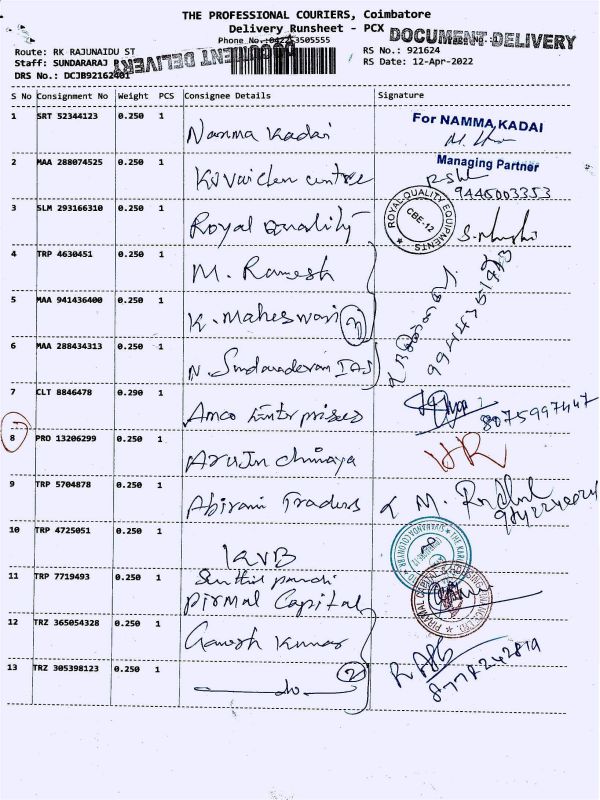 THE PROFESSIONAL COURIERS, Coimbatore
Delivery Runsheet - PCX
Phone No.:0422-4350555
DOCUMENT DELIVERY
DOCUMENT DELIVERY
Route: RK RAJUNAIDU ST
RS No.: 921624
Staff: SUNDARARAJ
RS Date: 12-Apr-2022
DRS No.: DCJB92162401
S No Consignment No Weight PCS Consignee Details Signature
1 SRT 52344123 0.250 1 Namma Kadai For NAMMA KADAI
Managing Partner
2 MAA 288074525 0.250 1
9446003353
3 SLM 293166310 0.250 1 Royal Quality
ROYAL QUALITY EQUIPMENTS
CBE-12
4 TRP 4630451 0.250 1 M. Ramesh
5 MAA 941436400 0.250 1 K. Maheswari
6 MAA 288434313 0.250 1 N. Sundaradevan IAS
7 CLT 8846478 0.290 1 Amco Enterprises
8075997447
8 PRO 13206299 0.250 1 Arujun Chinaya HR
9 TRP 5704878 0.250 1 Abirami Traders
10 TRP 4725051 0.250 1 KVB
11 TRP 7719493 0.250 1 Senthil pandi
Pirmal Capital
12 TRZ 365054328 0.250 1 Ganesh Kumar
2
13 TRZ 305398123 0.250 1 do
8778242819